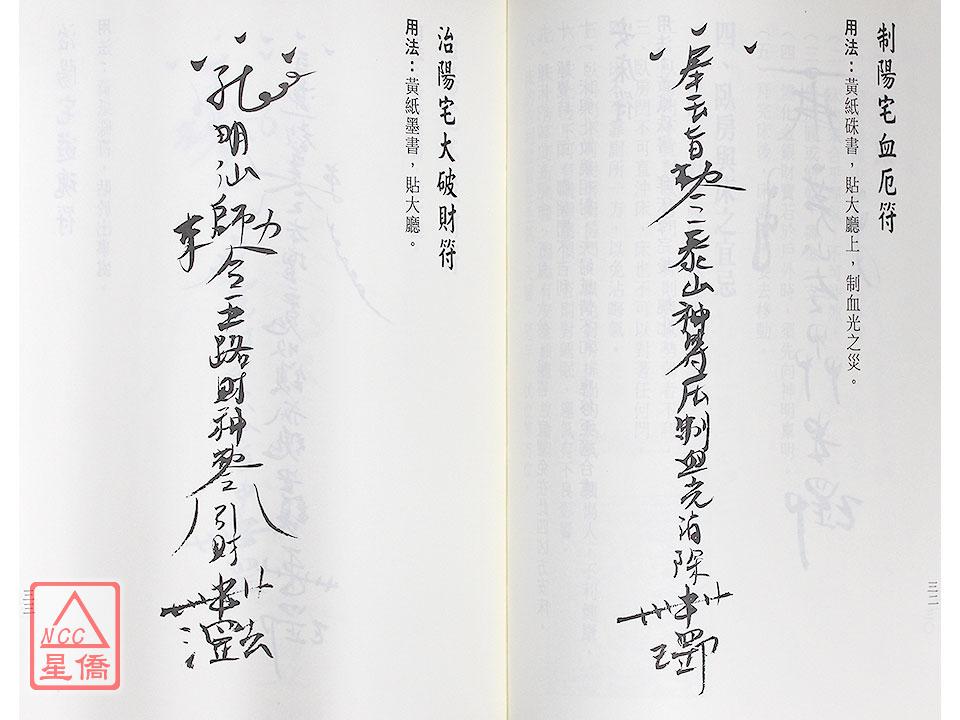 制陽宅血厄符
用法：黃紙硃書，貼大廳上，制血光之災。
奉玉旨敕令泰山神符压制血光消除罡
三二
治陽宅大破財符
用法：黃紙墨書，貼大廳。
孔明仙師敕令五路財神敕令引財罡
三三
NCC
星僑